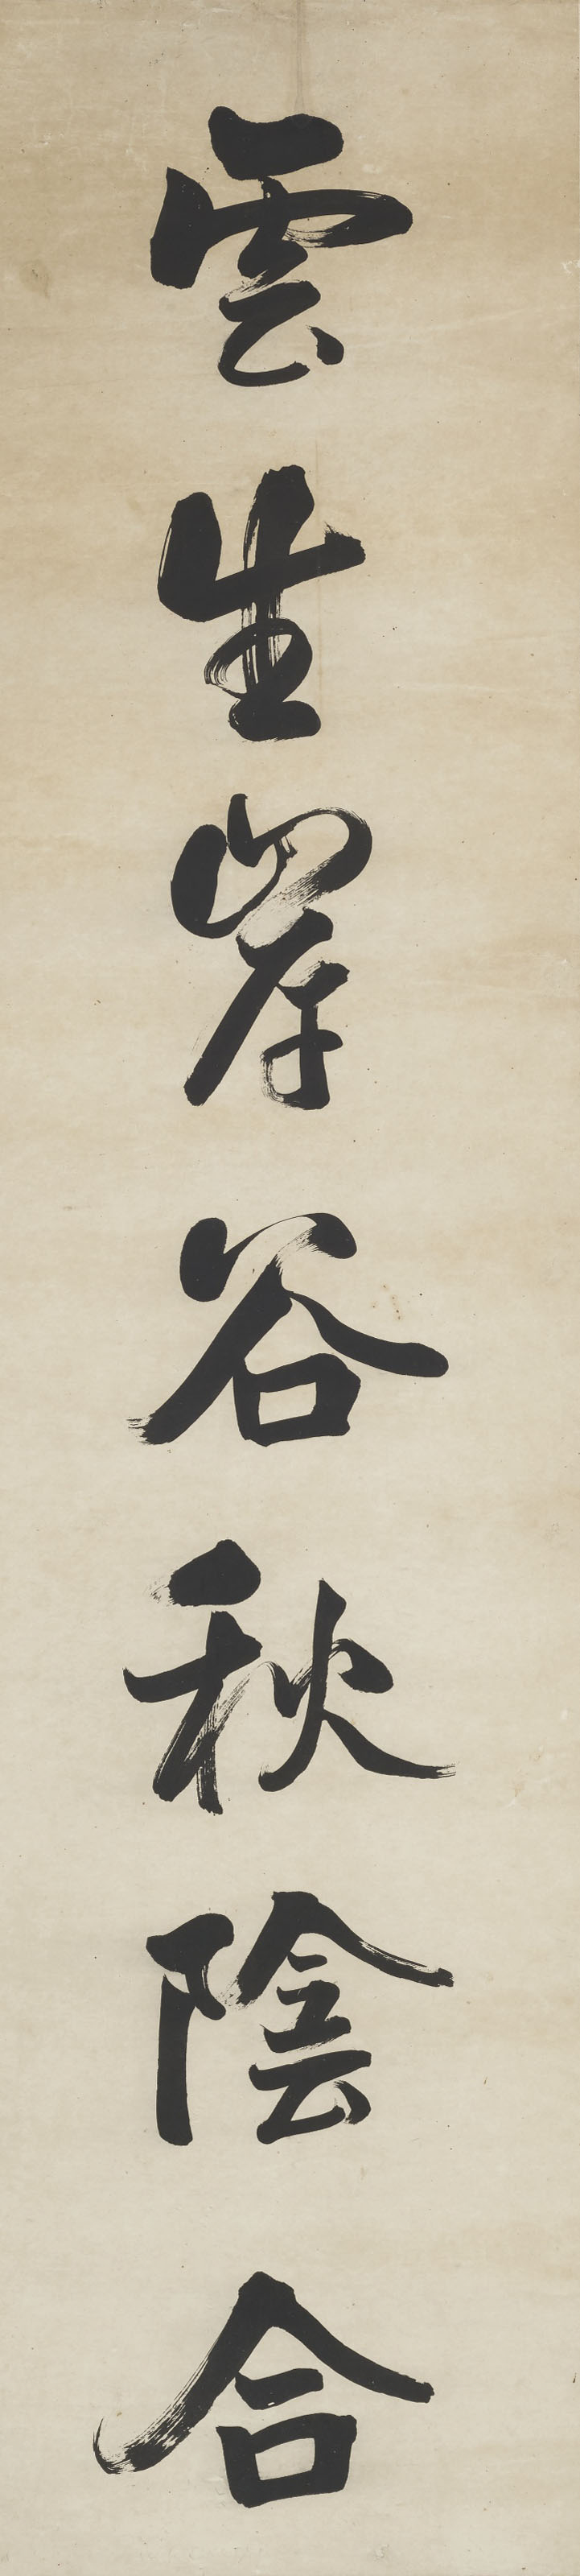 雲生岸谷秋陰合